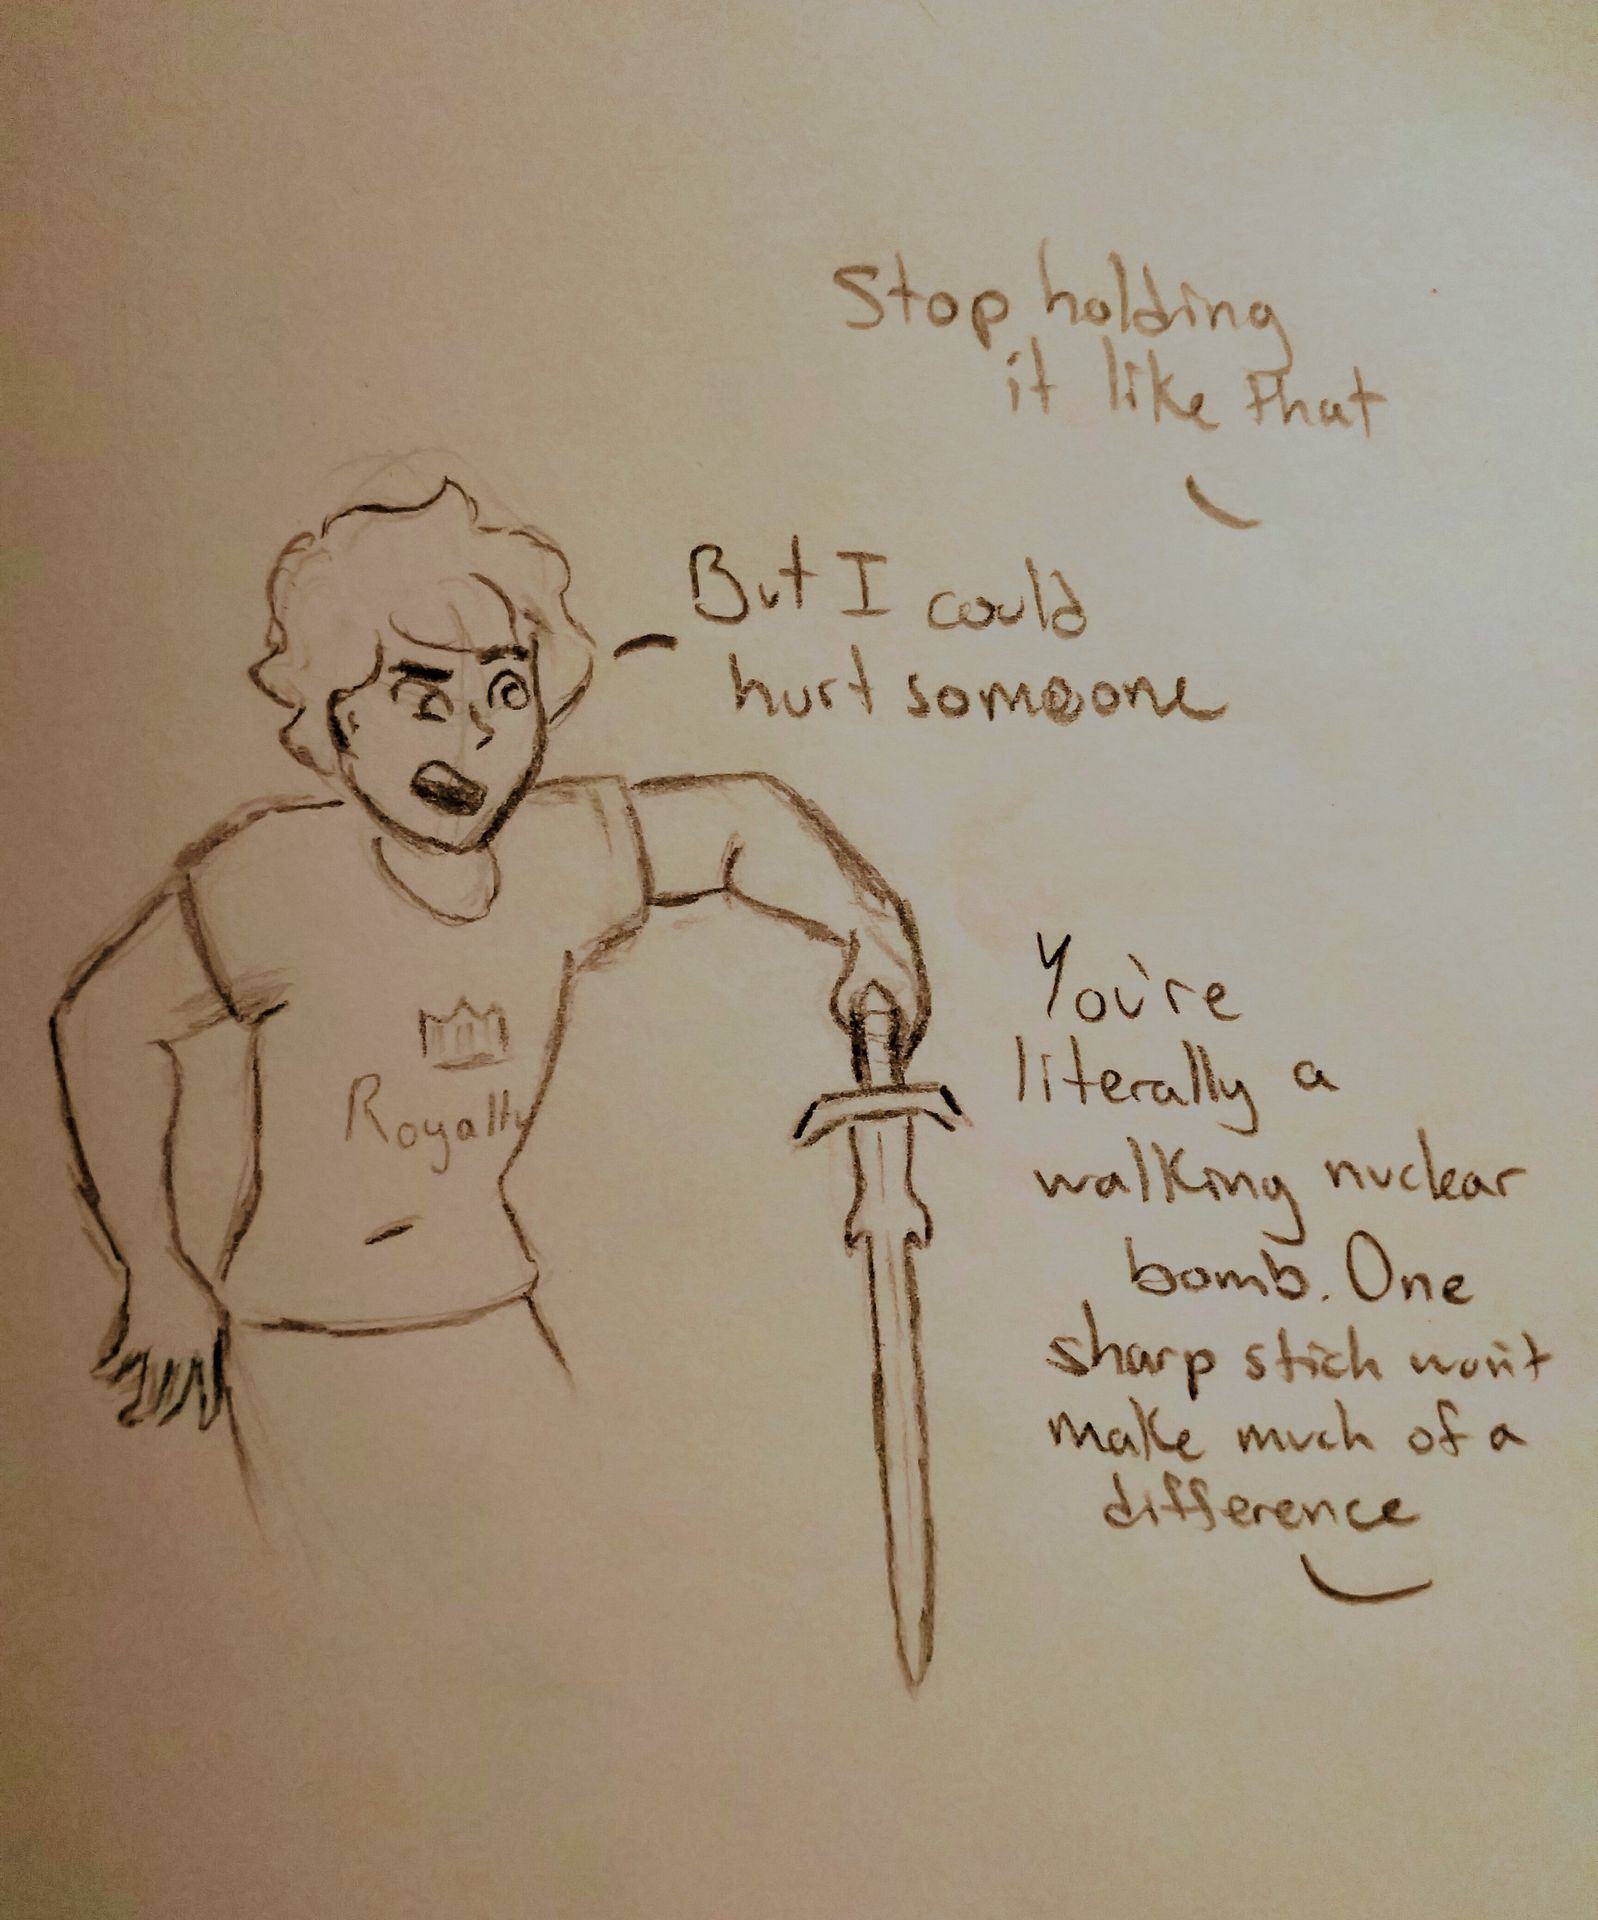 Stop holding
it like that
But I could
hurt someone
Royalty
You're
literally a
walking nuclear
bomb. One
sharp stick won't
make much of a
difference